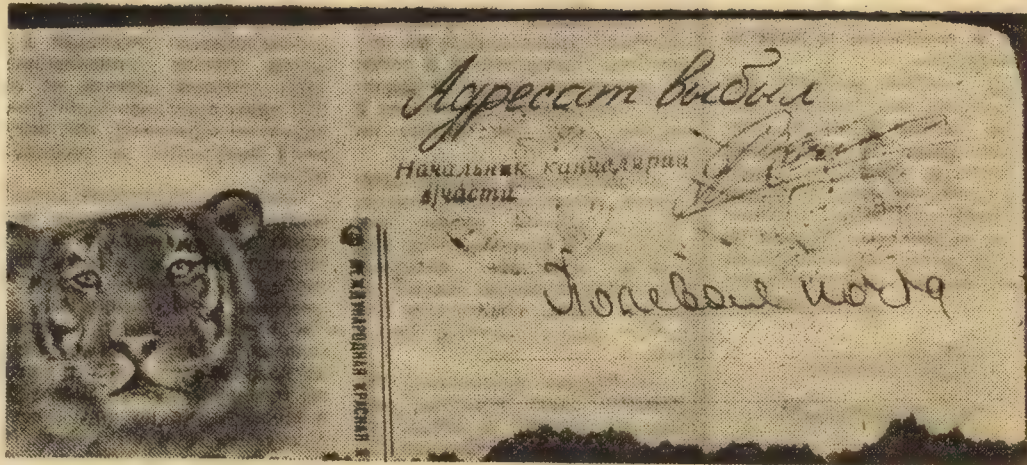 Адресат выбыл
Начальник канцелярии
в/части
Полевая почта
МЕЖДУНАРОДНАЯ КРАСНАЯ